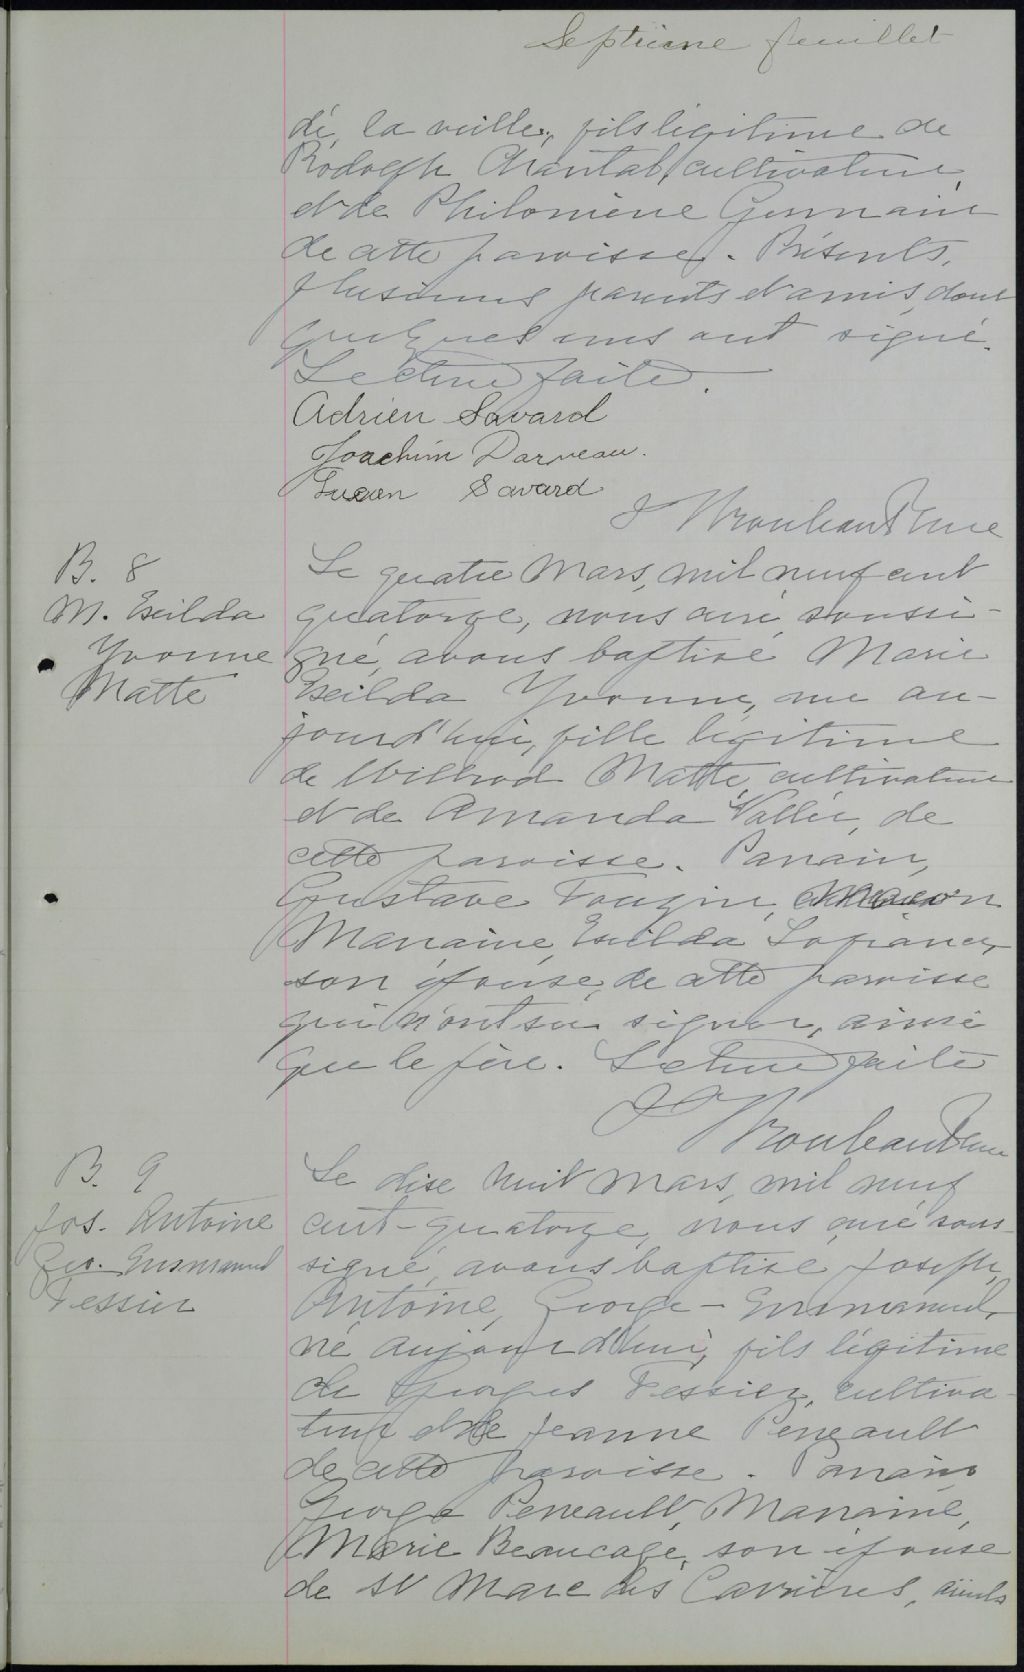 Septième feuillet
dé, la veille, fils légitime de
Rodolph Chantal, cultivateur,
et de Philomène Germain
de cette paroisse. Présents,
plusieurs parents et amis, dont
quelques uns ont signé.
Lecture faite.
Adrien Savard
Joachim Darveau.
Lucien Savard
Rouleau Ptre curé
B. 8
M. Exilda
Yvonne
Matte
Le quatre Mars, mil neuf cent
quatorze, nous curé soussi-
gné, avons baptisé Marie
Exilda Yvonne, née au-
jourd'hui, fille légitime
de Willrod Matte, cultivateur
et de Amanda Vallée, de
cette paroisse. Parrain,
Gustave
Marraine, Exilda Lafrance,
son épouse, de cette paroisse
qui n'ont su signer, ainsi
que le père. Lecture faite
Rouleau Ptre curé
B. 9
Jos. Antoine
Geo. Emmanuel
Tessier
Le dix huit Mars, mil neuf
cent-quatorze, nous curé sous-
signé, avons baptisé Joseph,
Antoine, George-Emmanuel,
né aujourd'hui, fils légitime
de Georges Tessier, cultiva-
teur et de Jeanne Perreault
de cette paroisse. Parrain
George Perreault, Marraine,
Marie Beaucage, son épouse
de St Marc des Carrières, aïeuls